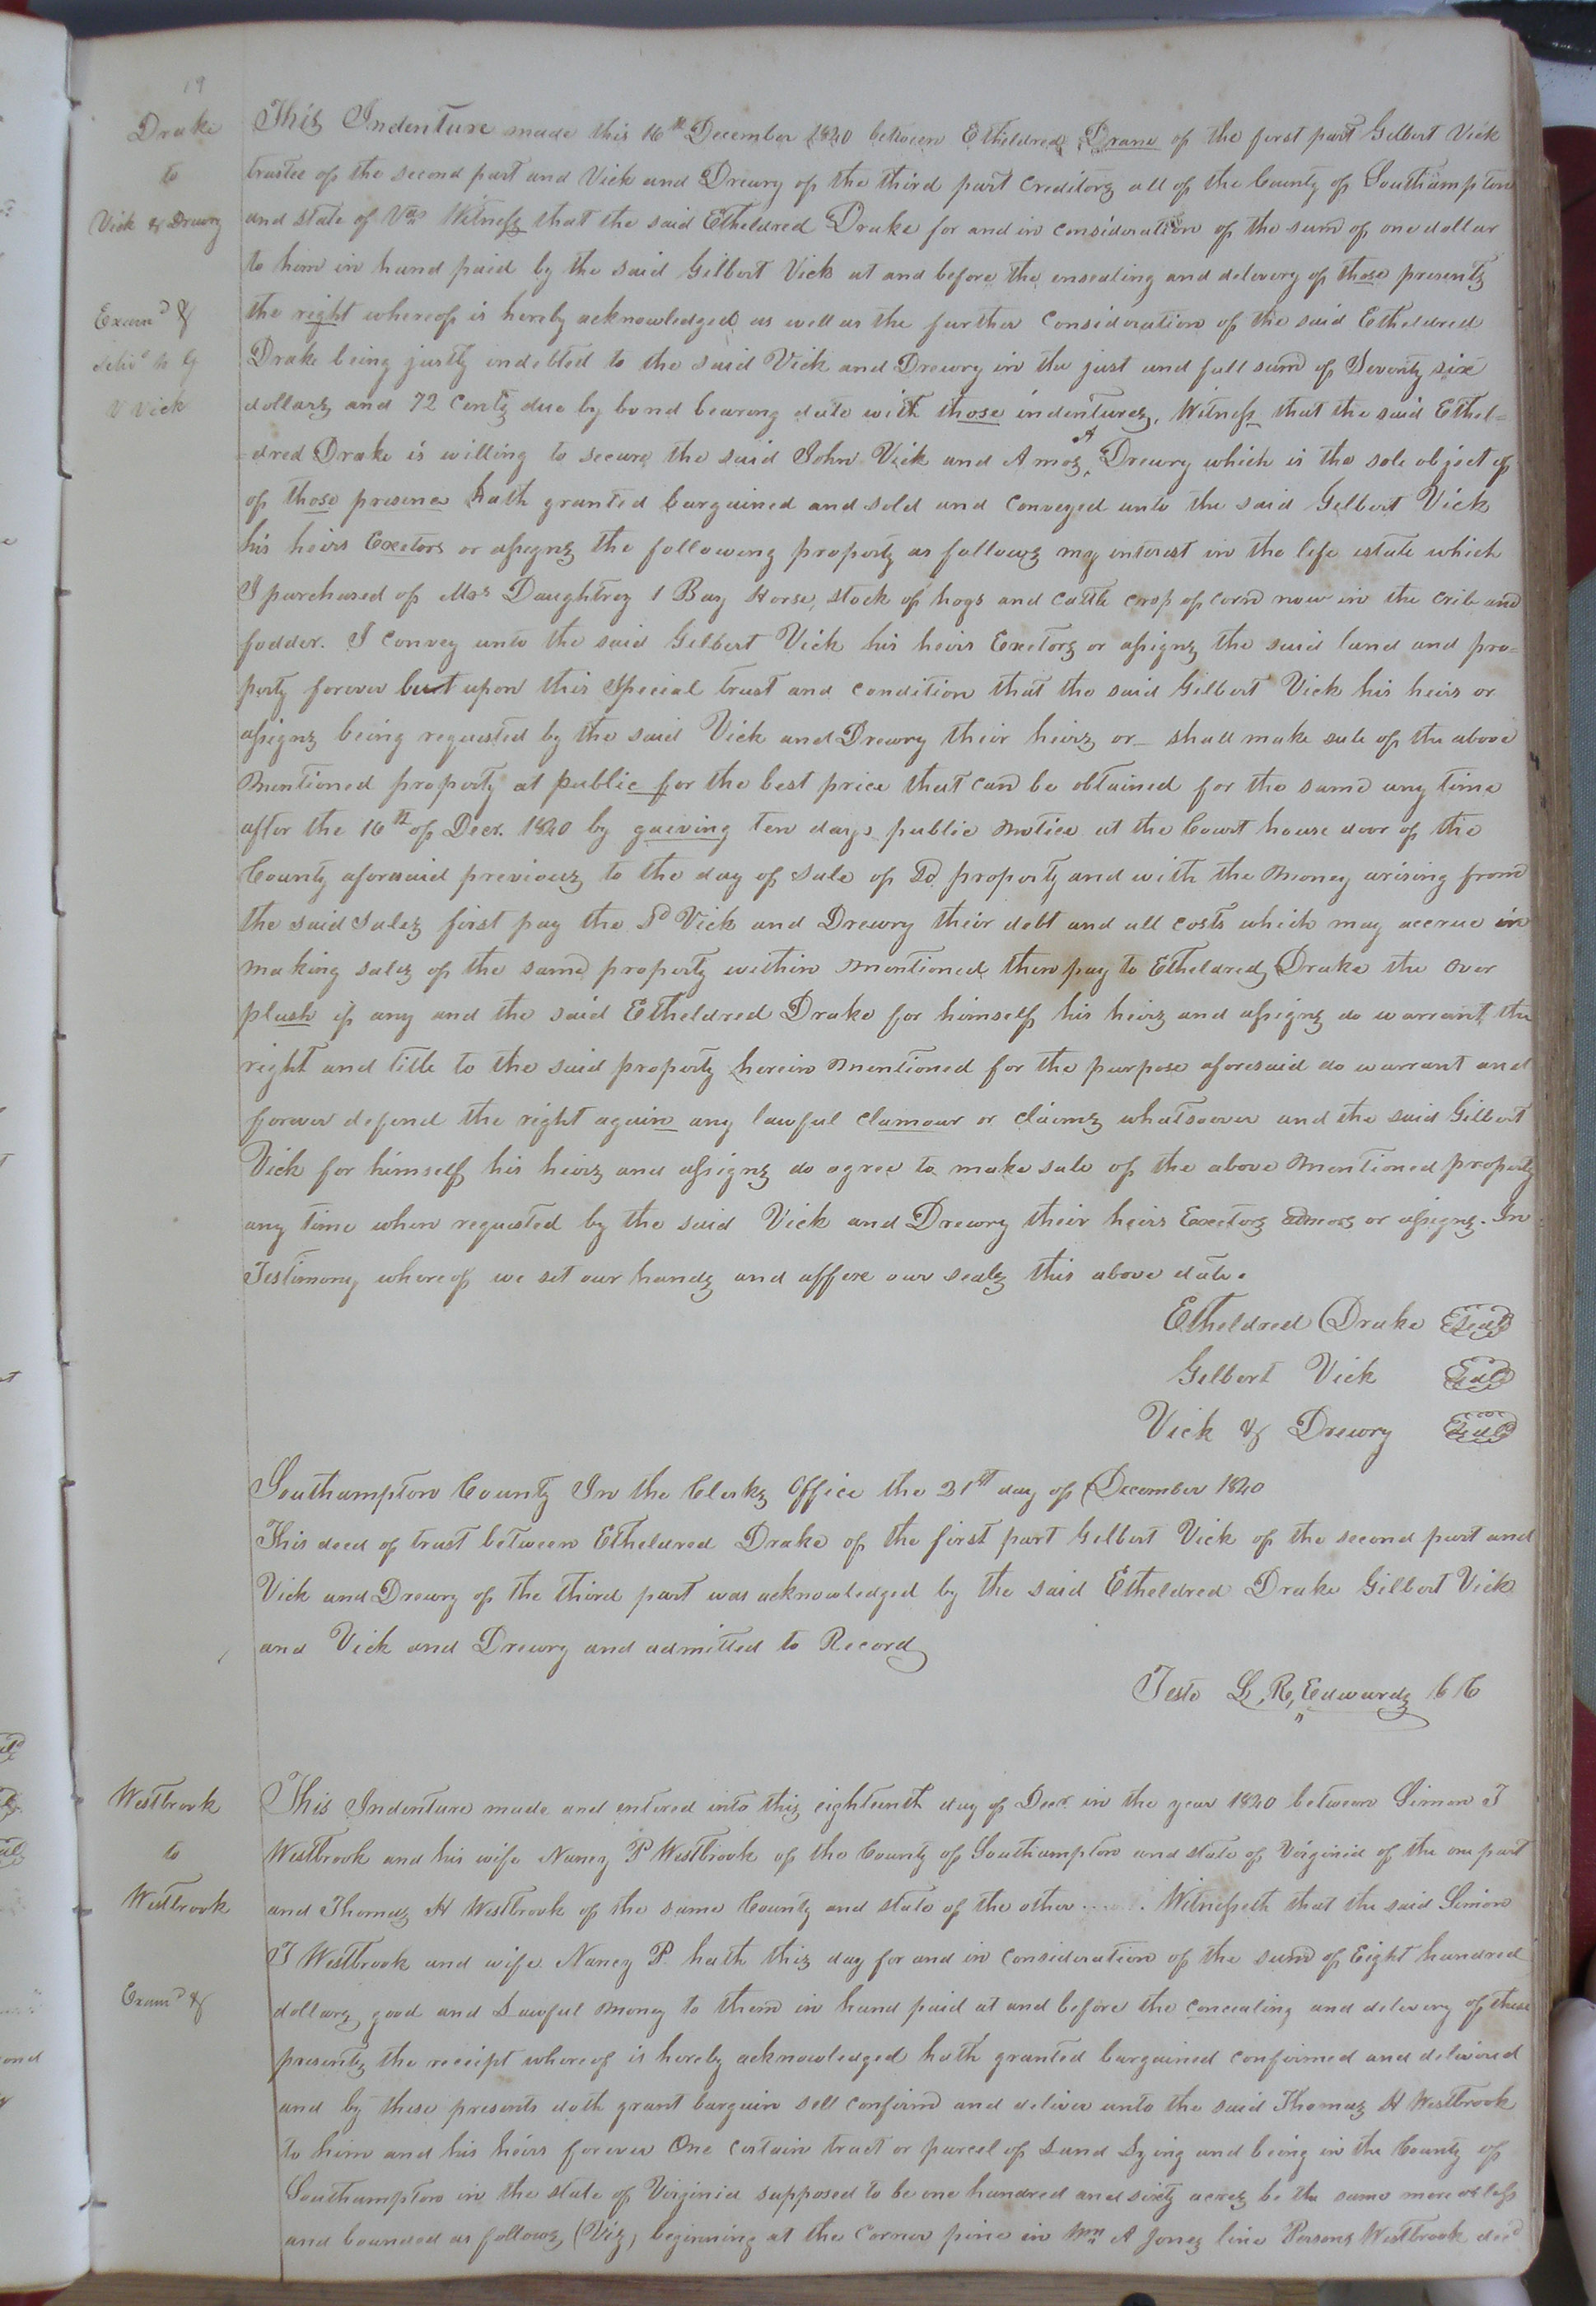 19
Drake
to
Vick & Drewry
Examd &
V Vick
This Indenture made this 16th December 1840 between Etheldred Drane of the first part Gilbert Vick
trustee of the second part and Vick and Drewry of the third part Creditors all of the County of Southampton
and state of Va Witness that the said Etheldred Drake for and in consideration of the sum of one dollar
to him in hand paid by the said Gilbert Vick at and before the ensealing and delivery of those presents
the right whereof is hereby acknowledged as well as the further consideration of the said Etheldred
Drake being justly indebted to the said Vick and Drewry in the just and full sum of Seventy six
dollars and 72 cents due by bond bearing date with those indentures, Witness that the said Ethel=
=dred Drake is willing to secure the said John Vick and Amos A Drewry which is the sole object of
of those presence hath granted bargained and sold and conveyed unto the said Gilbert Vick
his heirs Exetors or assigns the following property as follows my interest in the life estate which
I purchased of Mrs Daughtrey 1 Bay Horse, stock of hogs and cattle crop of corn now in the crib and
fodder. I convey unto the said Gilbert Vick his heirs Exetors or assigns the said land and pro=
perty forever but upon this special trust and condition that the said Gilbert Vick his heirs or
assigns being requested by the said Vick and Drewry their heirs or_ shall make sale of the above
mentioned property at public for the best price that can be obtained for the same any time
after the 16th of Decr. 1840 by gaiving ten days public notice at the Court house door of the
County aforesaid previous to the day of sale of Sd property and with the money arising from
the said sales first pay the Sd Vick and Drewry their debt and all costs which may accrue in
making sales of the same property within mentioned then pay to Etheldred Drake the over
plush if any and the said Etheldred Drake for himself his heirs and assigns do warrant the
right and title to the said property herein mentioned for the purpose aforesaid do warrant and
forever defend the right again any lawful clamour or claims whatsoever and the said Gilbert
Vick for himself his heirs and assigns do agree to make sale of the above mentioned property
any time when requested by the said Vick and Drewry their heirs Exetors admors or assigns. In
Testimony whereof we set our hands and affixe our seals this above date.
Etheldred Drake Seal
Gilbert Vick Seal
Vick & Drewry Seal
Southampton County In the Clerks Office the 21st day of December 1840
This deed of trust between Etheldred Drake of the first part Gilbert Vick of the second part and
Vick and Drewry of the third part was acknowledged by the said Etheldred Drake Gilbert Vick
and Vick and Drewry and admitted to Record
Teste L, R, Edwards CC
Westbrook
to
Westbrook
Examd &
This Indenture made and entered into this eighteenth day of Decr. in the year 1840 between Simon T
Westbrook and his wife Nancy P Westbrook of the County of Southampton and state of Virginia of the one part
and Thomas H Westbrook of the same County and state of the other .... Witnesseth that the said Simon
T Westbrook and wife Nancy P. hath this day for and in consideration of the sum of Eight hundred
dollars good and Lawful money to them in hand paid at and before the concealing and delivery of these
presents the receipt whereof is hereby acknowledged hath granted bargained confirmed and delivered
and by these presents doth grant bargain sell confirm and deliver unto the said Thomas H Westbrook
to him and his heirs forever One certain tract or parcel of Land Lying and being in the County of
Southampton in the state of Virginia supposed to be one hundred and sixty acres be the same more or less
and bounded as follows, (Viz) beginning at the corner pine in Wm A Jones line Parsons Westbrook decd